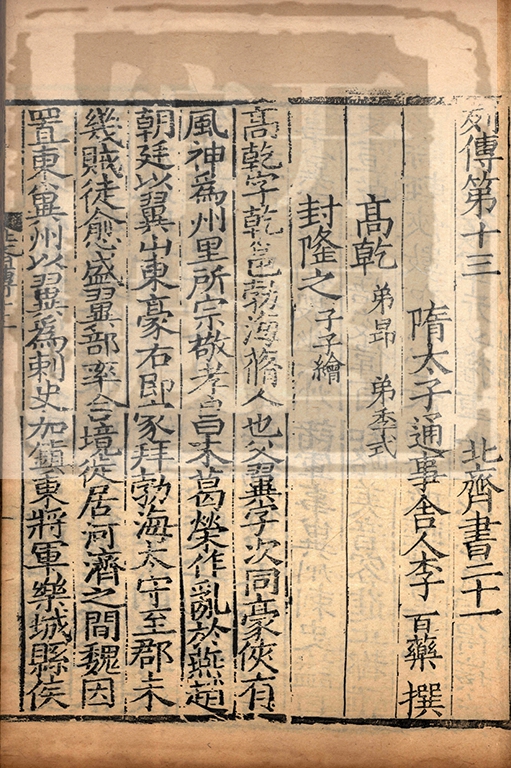 列傳第十三 北齊書二十一
隋太子通事舍人李 百藥 撰
高乾 弟昂 弟季式
封隆之 子子繪
高乾字乾邕勃海脩人也父翼字次同豪俠有
風神為州里所宗敬孝昌末葛榮作亂於燕趙
朝廷以翼山東豪右即家拜勃海太守至郡未
幾賊徒愈盛翼部率合境徙居河濟之間魏因
置東冀州以翼為刺史加鎮東將軍樂城縣侯